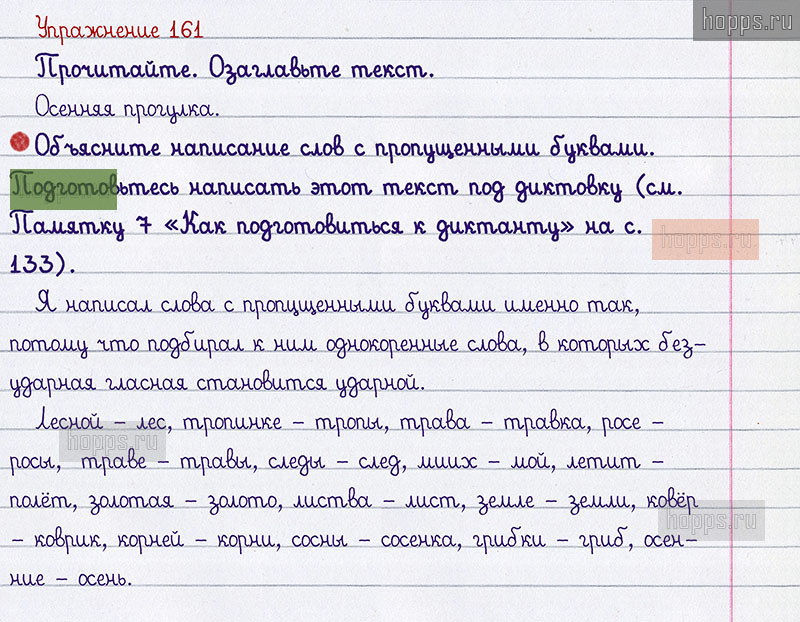 hopps.ru
Упражнение 161
Прочитайте. Озаглавьте текст.
Осенняя прогулка.
Объясните написание слов с пропущенными буквами.
Подготовьтесь написать этот текст под диктовку (см.
Памятку 7 «Как подготовиться к диктанту» на с.
hopps.ru
133).
Я написал слова с пропущенными буквами именно так,
потому что подбирал к ним однокоренные слова, в которых без-
ударная гласная становится ударной.
Лесной – лес, тропинке – тропы, трава – травка, росе –
hopps.ru
росы, траве – травы, следы – след, миих – мой, летит –
полёт, золотая – золото, листва – лист, земле – земли, ковёр
hopps.ru
– коврик, корней – корни, сосны – сосенка, грибки – гриб, осен-
ние – осень.